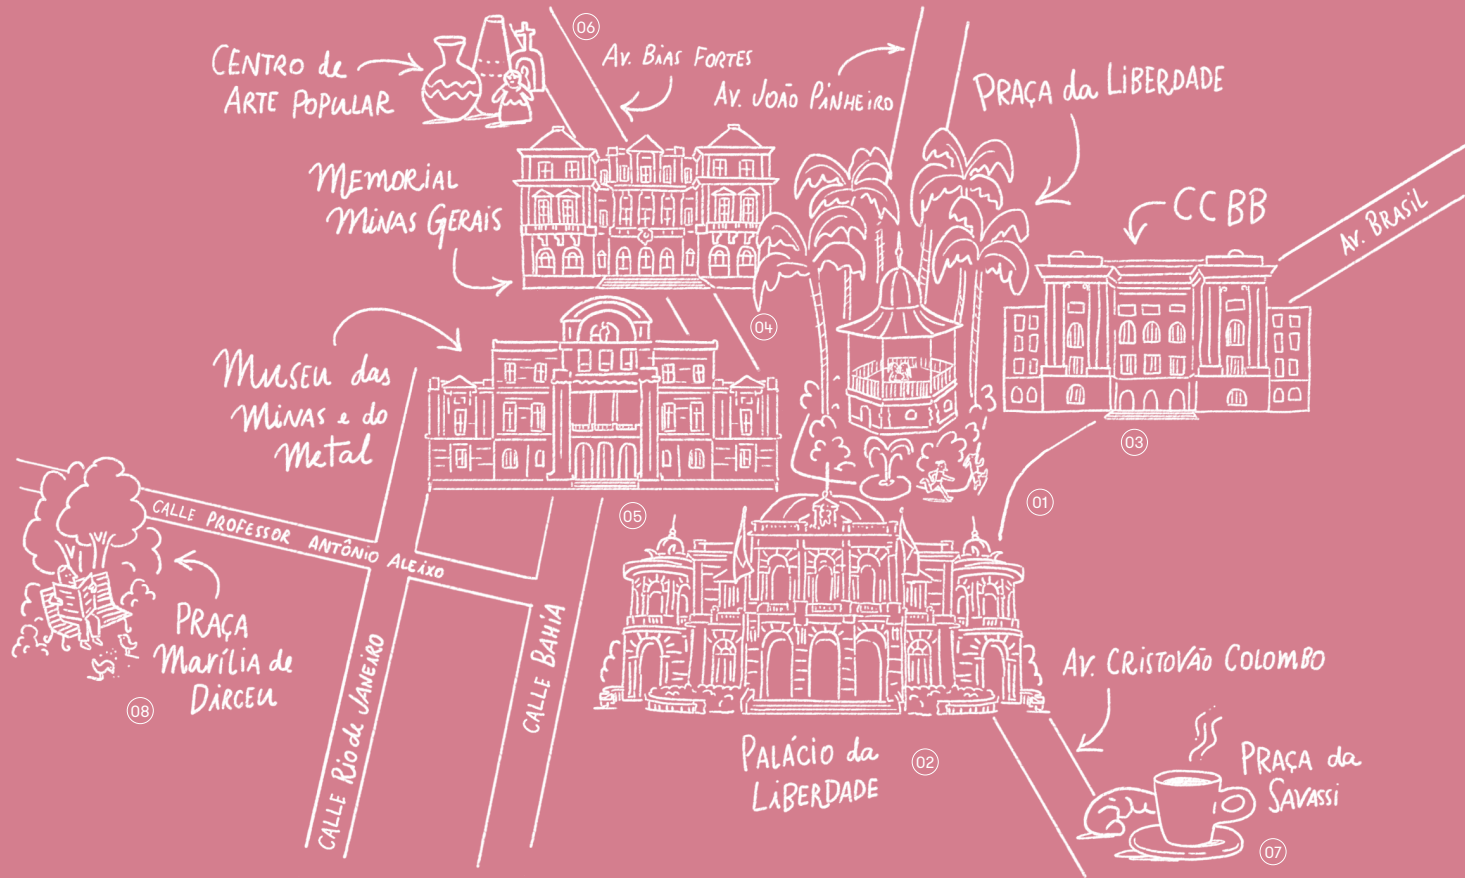 06
CENTRO de
ARTE POPULAR
AV. BIAS FORTES
AV. JOÃO PINHEIRO
PRAÇA da LIBERDADE
MEMORIAL
MINAS GERAIS
CCBB
AV. BRASIL
04
MUSEU das
MINAS e do
Metal
03
01
05
CALLE PROFESSOR ANTÔNIO ALEIXO
PRAÇA
Marília de
DIRCEU
08
CALLE Rio de JANEIRO
CALLE BAHÍA
PALÁCIO da
LIBERDADE
02
AV. CRISTOVÃO COLOMBO
PRAÇA da
SAVASSI
07